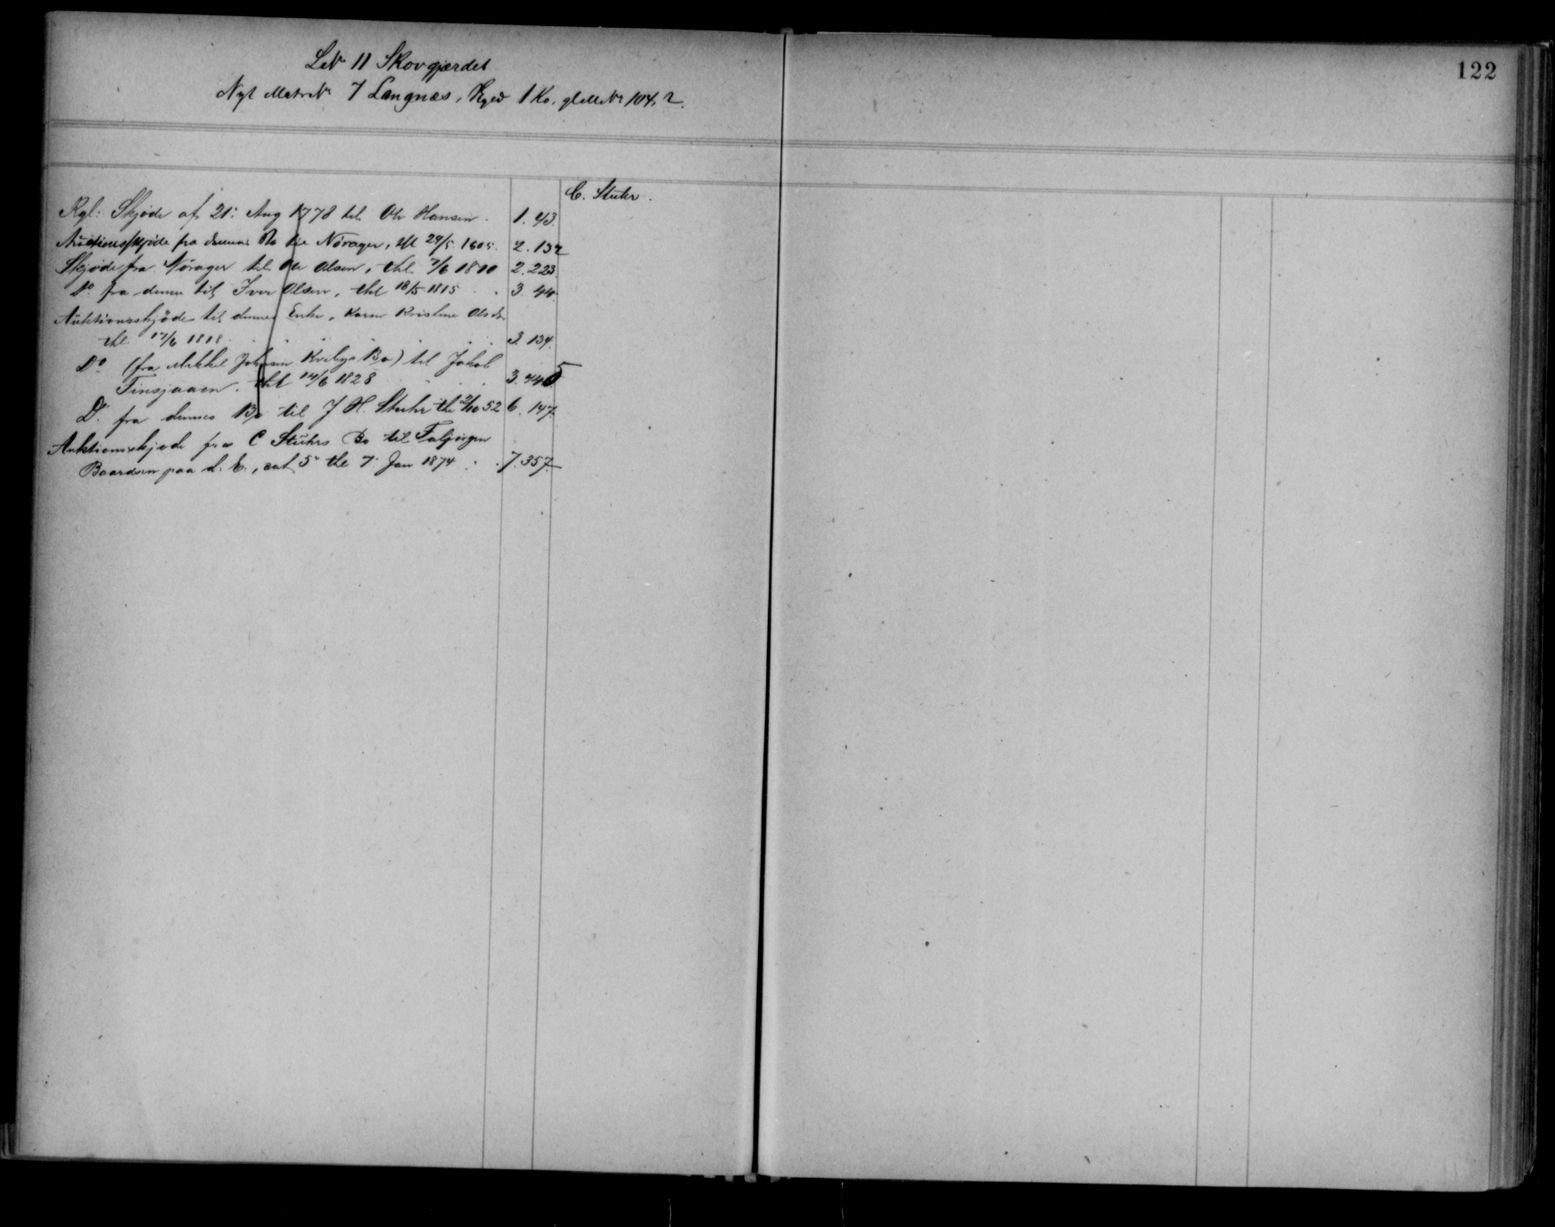 122
LNo 11 Skovgjærdet
Nyt MatrNo 7 Langnæs, 1 Ko, glMNo 104, 2.
C. Stuhr.
Kgl: Skjøde af 21: Aug 1778 til Ole Hansen. 1. 43.
Auctionsskjøde fra dennes Bo til Nørager, thl 29/5 1805. 2. 132
Skjøde fra Nørager til Ole Olsen, thl. 7/6 1810 2. 223.
Do fra denne til Iver Olsen, thl 18/5 1815 . 3. 44.
Auktionsskjøde til dennes Enke, Karen Kristine Olsdr
thl 17/6 1818. 3. 134.
Do (fra Mikkel Johnsen Bo) til Jakob
Finsjaaen. thl 14/6 1828 3. 445
Do fra dennes Bo til J H. Stuhr thl 2/10 52 6. 147.
Auktionsskjøde fra C Stuhrs Bo til
Baardsen paa d. E., dat 5 thl 7 Jan 1874 . . 7 357.